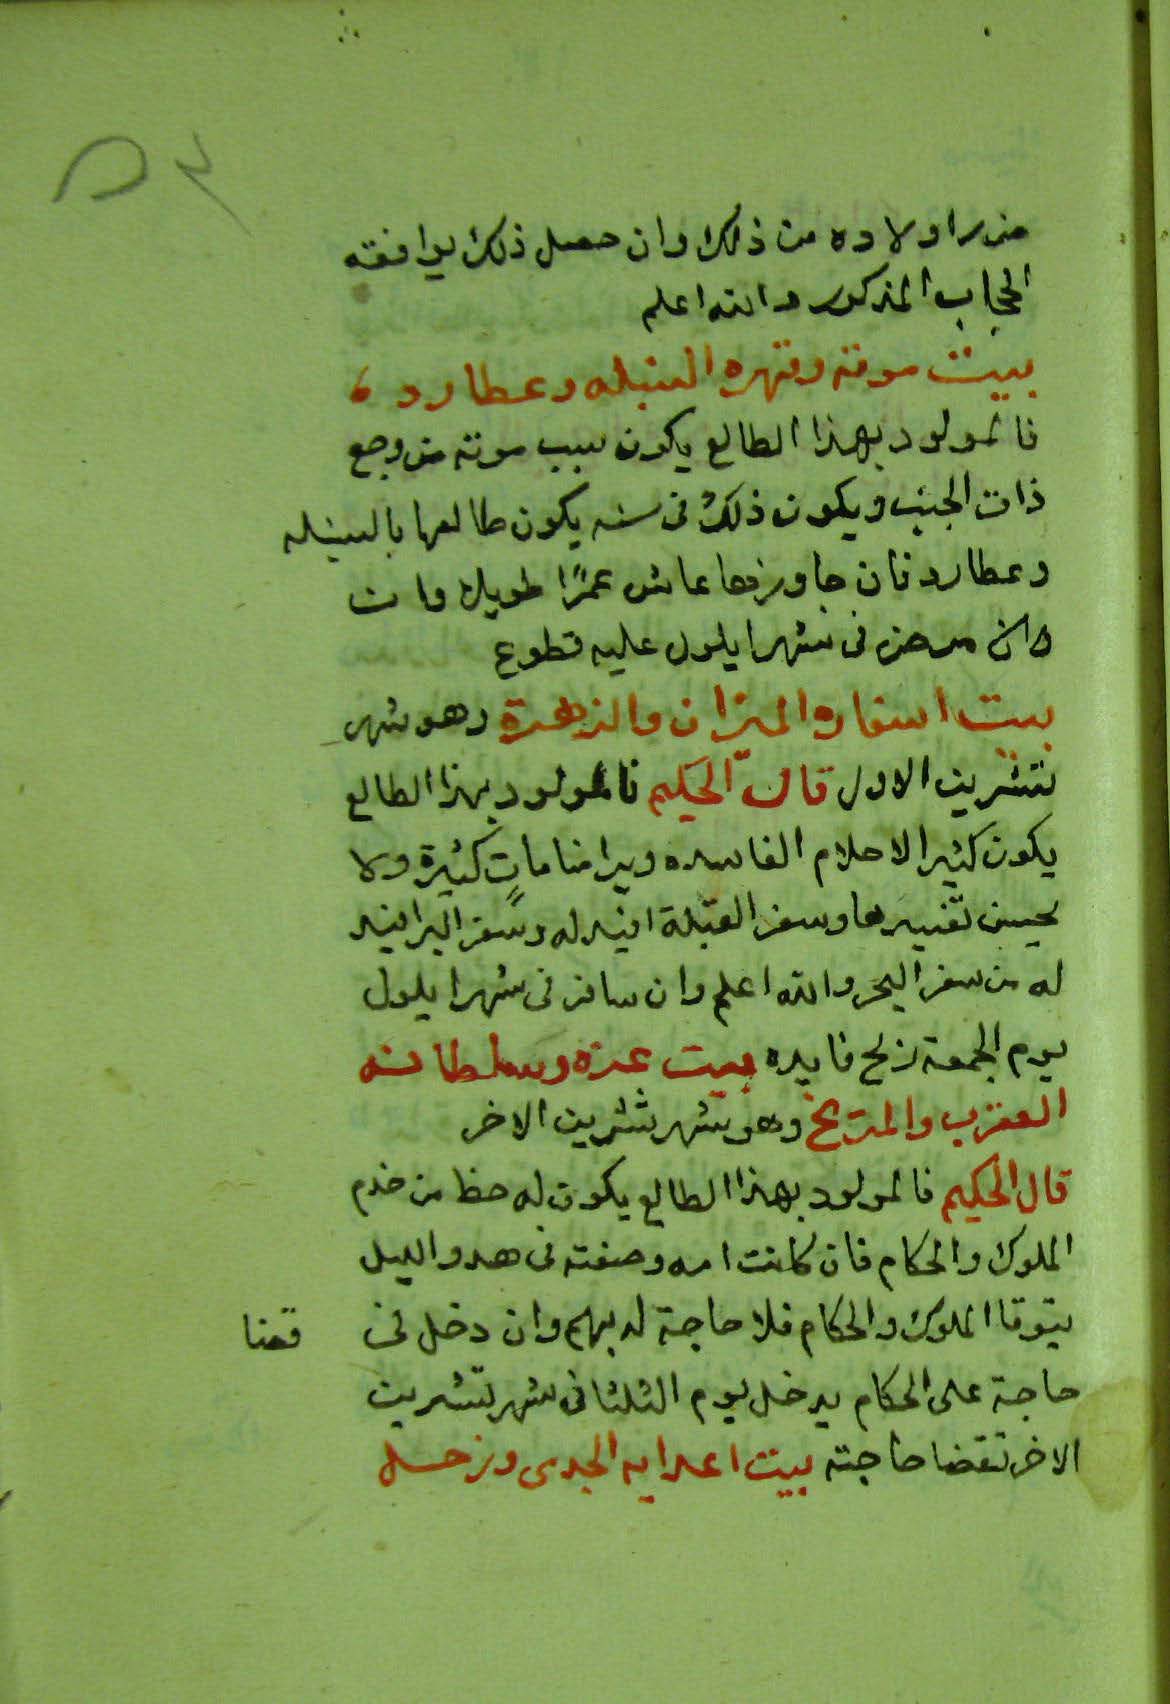 ٥٣
ضرر اولاده من ذلك وان حصل ذلك يوافقه
الحجاب المذكور والله اعلم
بيت موته وقهره السنبله وعطارد
فالمولود بهذا الطالع يكون سبب موته من وجع
ذات الجنب ويكون ذلك فى سنه يكون طالعها بالسنبله
وعطارد فان جاوزها عاش عمرًا طويلا ومات
وان مرض فى شهر ايلول عليه قطوع
بيت اسفاره الميزان والزهرة وهو شهر
تشرين الاول قال الحكيم فالمولود بهذا الطالع
يكون كثير الاحلام الفاسده ويرا مناماتٍ كثيرة ولا
يحسن تفسيرها وسفر القبلة افيد له وسفر البر افيد
له من سفر البحر والله اعلم وان سافر فى شهر ايلول
يوم الجمعة نزلح فايده بيت عزه وسلطانه
العقرب والمريخ وهو شهر تشرين الاخر
قال الحكيم فالمولود بهذا الطالع يكون له حظا من خدم
الملوك والحكام فان كانت امه وضعته فى هدو الليل
يتوقا الملوك والحكام فلا حاجة له بهم وان دخل فى قضا
حاجة على الحكام يدخل يوم الثلثا فى شهر تشرين
الاخر تقضا حاجته بيت اعدايه الجدى وزحل